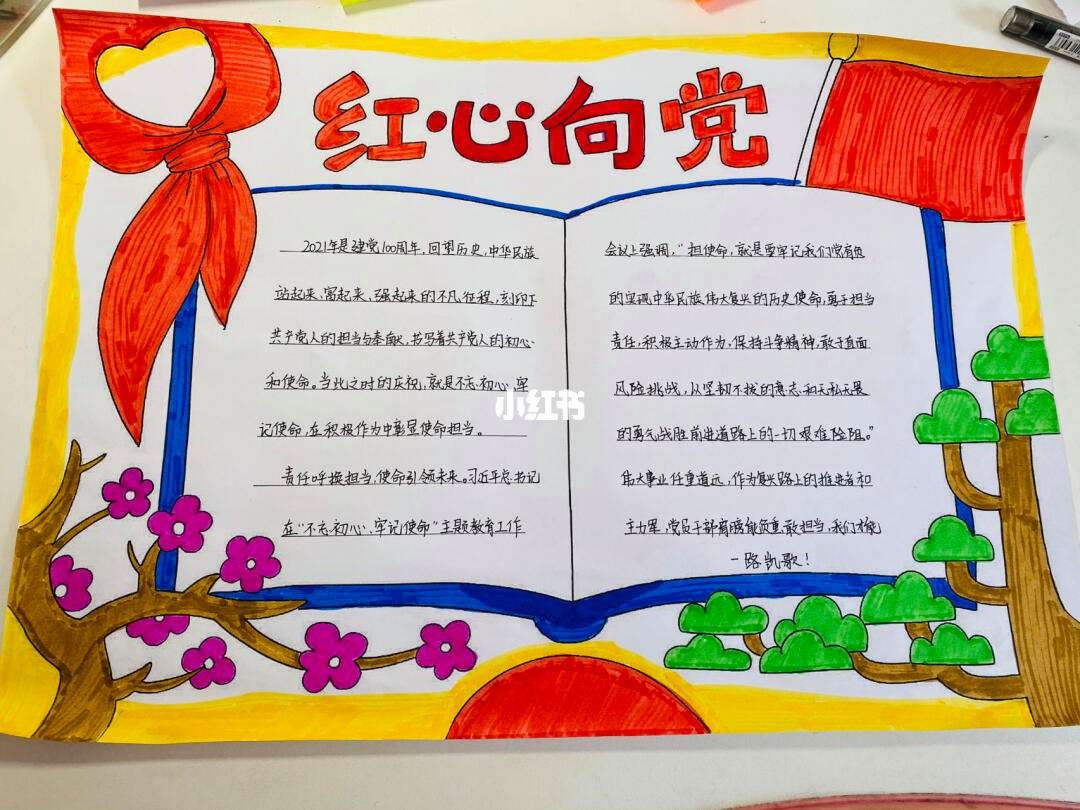 红心向党
2021年是建党100周年,回望历史,中华民族
站起来、富起来、强起来的不凡征程,刻印下
共产党人的担当与奉献,书写着共产党人的初心
和使命。当此之时的庆祝,就是不忘初心、牢
记使命,在积极作为中彰显使命担当。
责任呼换担当,使命引领未来。习近平总书记
在“不忘初心、牢记使命”主题教育工作
会议上强调,“担使命,就是要牢记我们党肩负
的实现中华民族伟大复兴的历史使命,勇于担当
责任,积极主动作为,保持斗争精神,敢于直面
风险挑战,从坚韧不拔的意志和无私无畏
的勇气战胜前进道路上的一切艰难险阻。”
伟大事业任重道远,作为复兴路上的推进者和
主力军,党员干部肩膀能负重,敢担当,我们才能
一路凯歌!
小红书